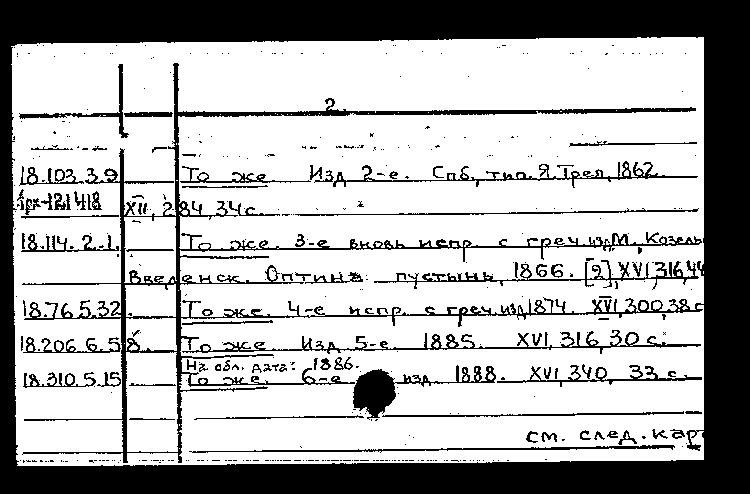 2.
18.103.3.9 То же. Изд 2-е. Спб., тип. Я. Трея, 1862.
XII, 284, 34 с.
18.114.2-1. То же. 3-е вновь испр. с греч. изд М., Козельс
Введенск. Оптина пустынь, 1866. [2], XVI, 316, 44
18.76.5.32. То же. 4-е испр. с греч. изд 1874. XVI, 300, 38 с
18.206.6.58. То же Изд 5-е. 1885. XVI, 316, 30 с.
На обл. дата: 1886.
18.310.5.15 То же. 6-е изд 1888. XVI, 340, 33 с.
см. след. кар